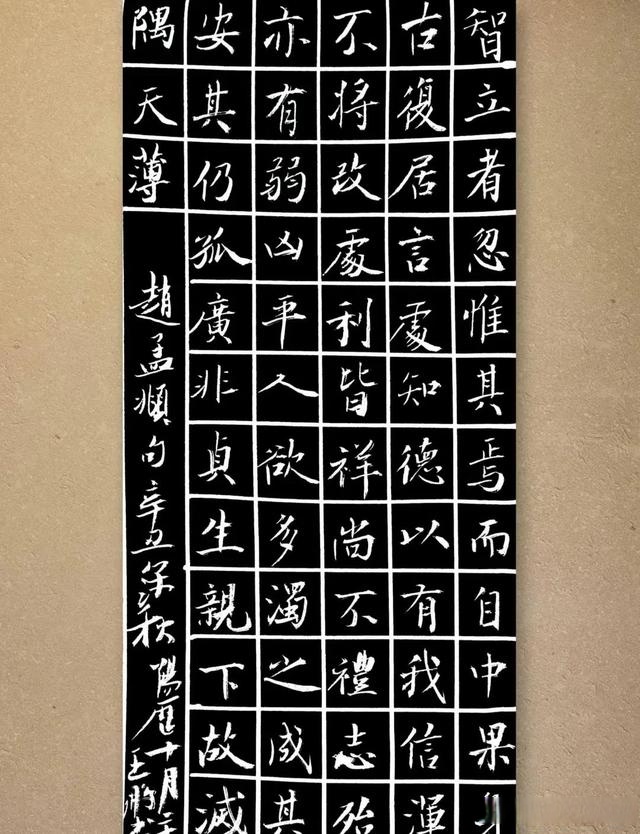 智立者忽惟其焉而自中果
古復居言處知德以有我信渾
不將改處利皆祥尚不禮志殆
亦有弱凶平人欲多濁之成其
安其仍孤廣非貞生親下故滅
隅天薄
趙孟頫句辛丑年秋陽歷十月